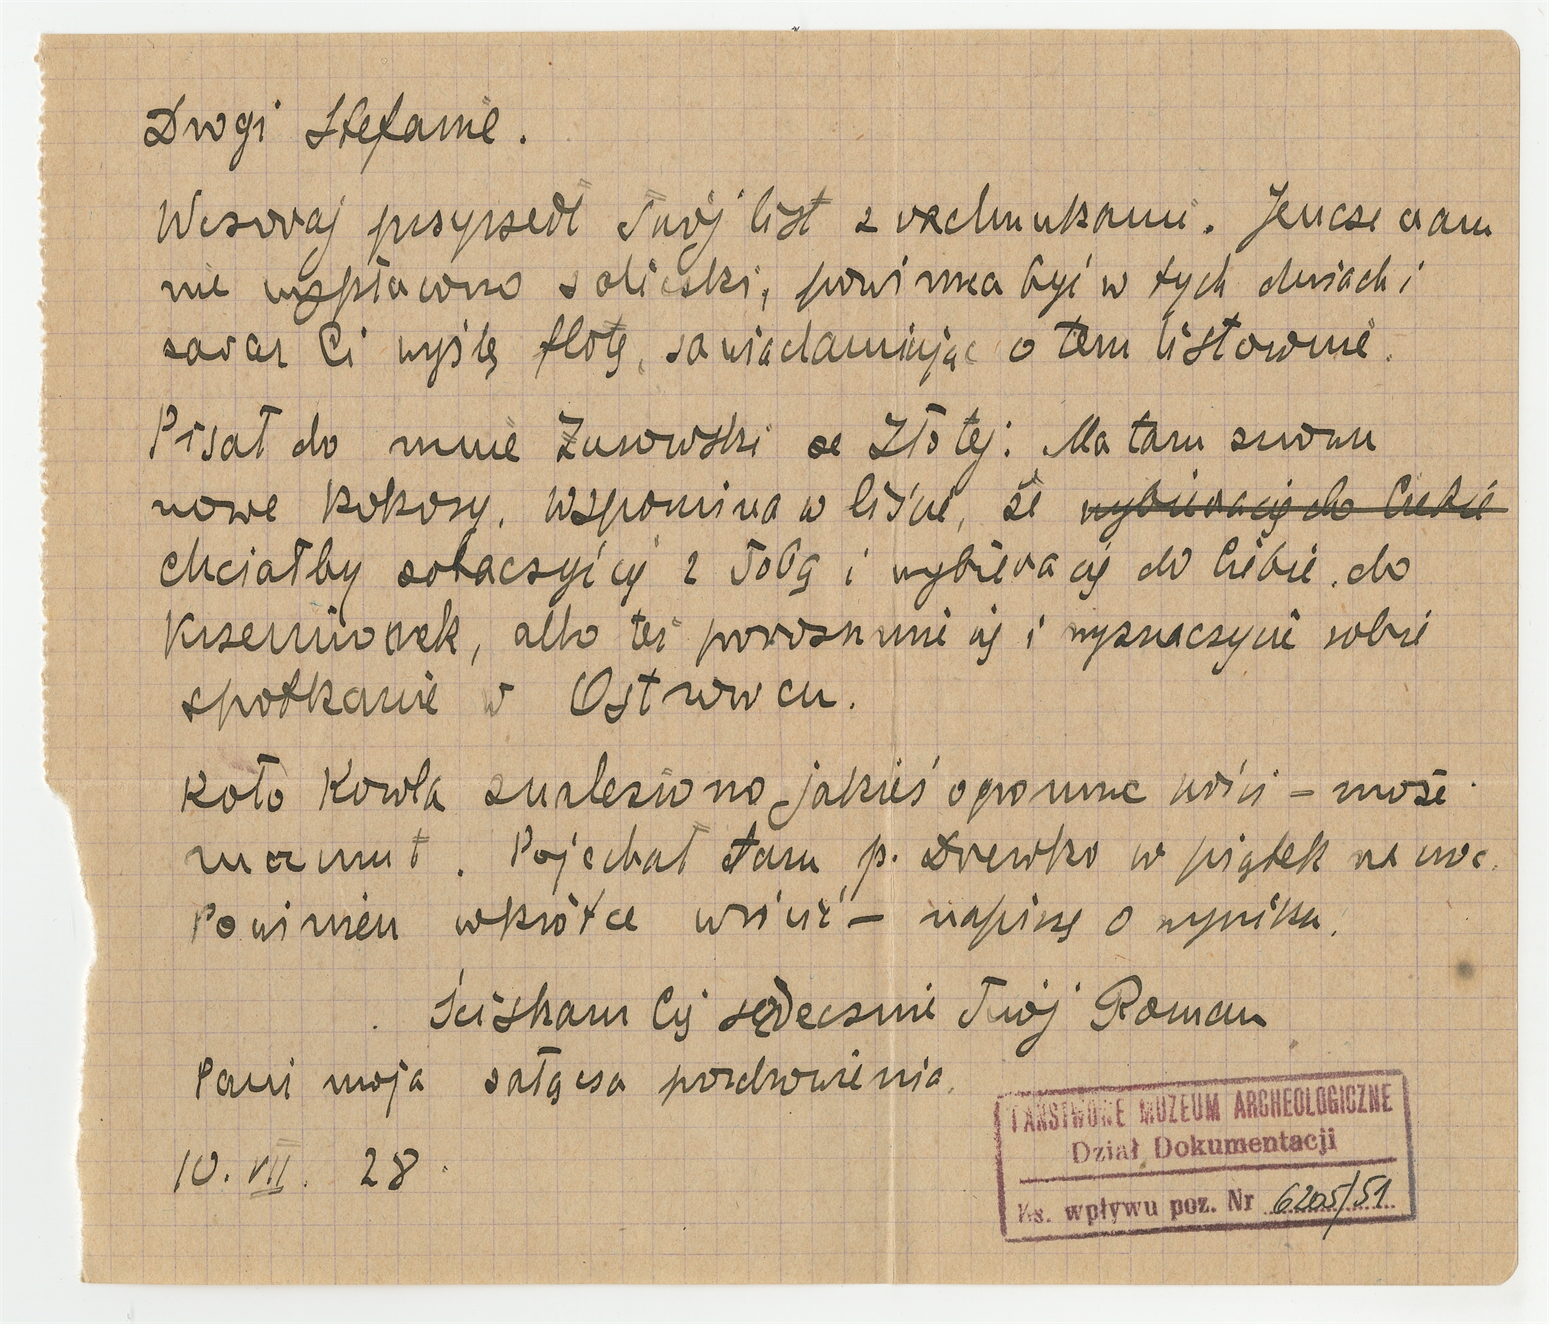 Drogi Stefanie.
Wczoraj przyszedł Twój list z rachunkami. Jeszcze nam
nie wypłacono zaliczki, powinna być w tych dniach i
zaraz Ci wyślę flotę, zawiadamiając o tem listownie.
Pisał do mnie Żurowski ze Złotej: Ma tam znowu
nowe kokosy. Wspomina w liście, że wybiera się do Ciebie
chciałby zobaczyć się z Tobą i wybiera się do Ciebie do
Krzemionek, albo też porozumie się i wyznaczycie sobie
spotkanie w Ostrowcu.
Koło Kowla znaleziono jakieś ogromne kości – może
mamut. Pojechał tam p. Drewko w piątek na noc.
Powinien wkrótce wrócić – napiszę o wyniku.
Ściskam Cię serdecznie Twój Roman
Pani moja załącza pozdrowienia.
10. VII. 28.
PAŃSTWOWE MUZEUM ARCHEOLOGICZNE
Dział Dokumentacji
Ks. wpływu poz. Nr 6205/51